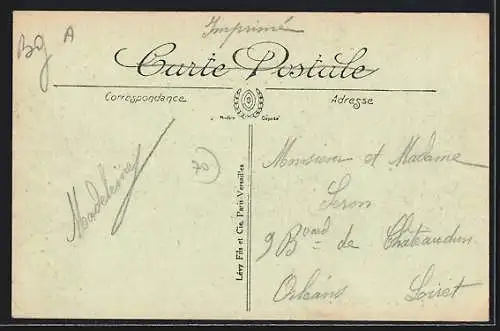 Imprimé
BG A
Carte Postale
Correspondance
Adresse
Modèle Déposé
Madeleine
70
Lévy Fils et Cie, Paris-Versailles
Monsieur et Madame
Seron
9 Bvard de Châteaudun
Orléans Loiret